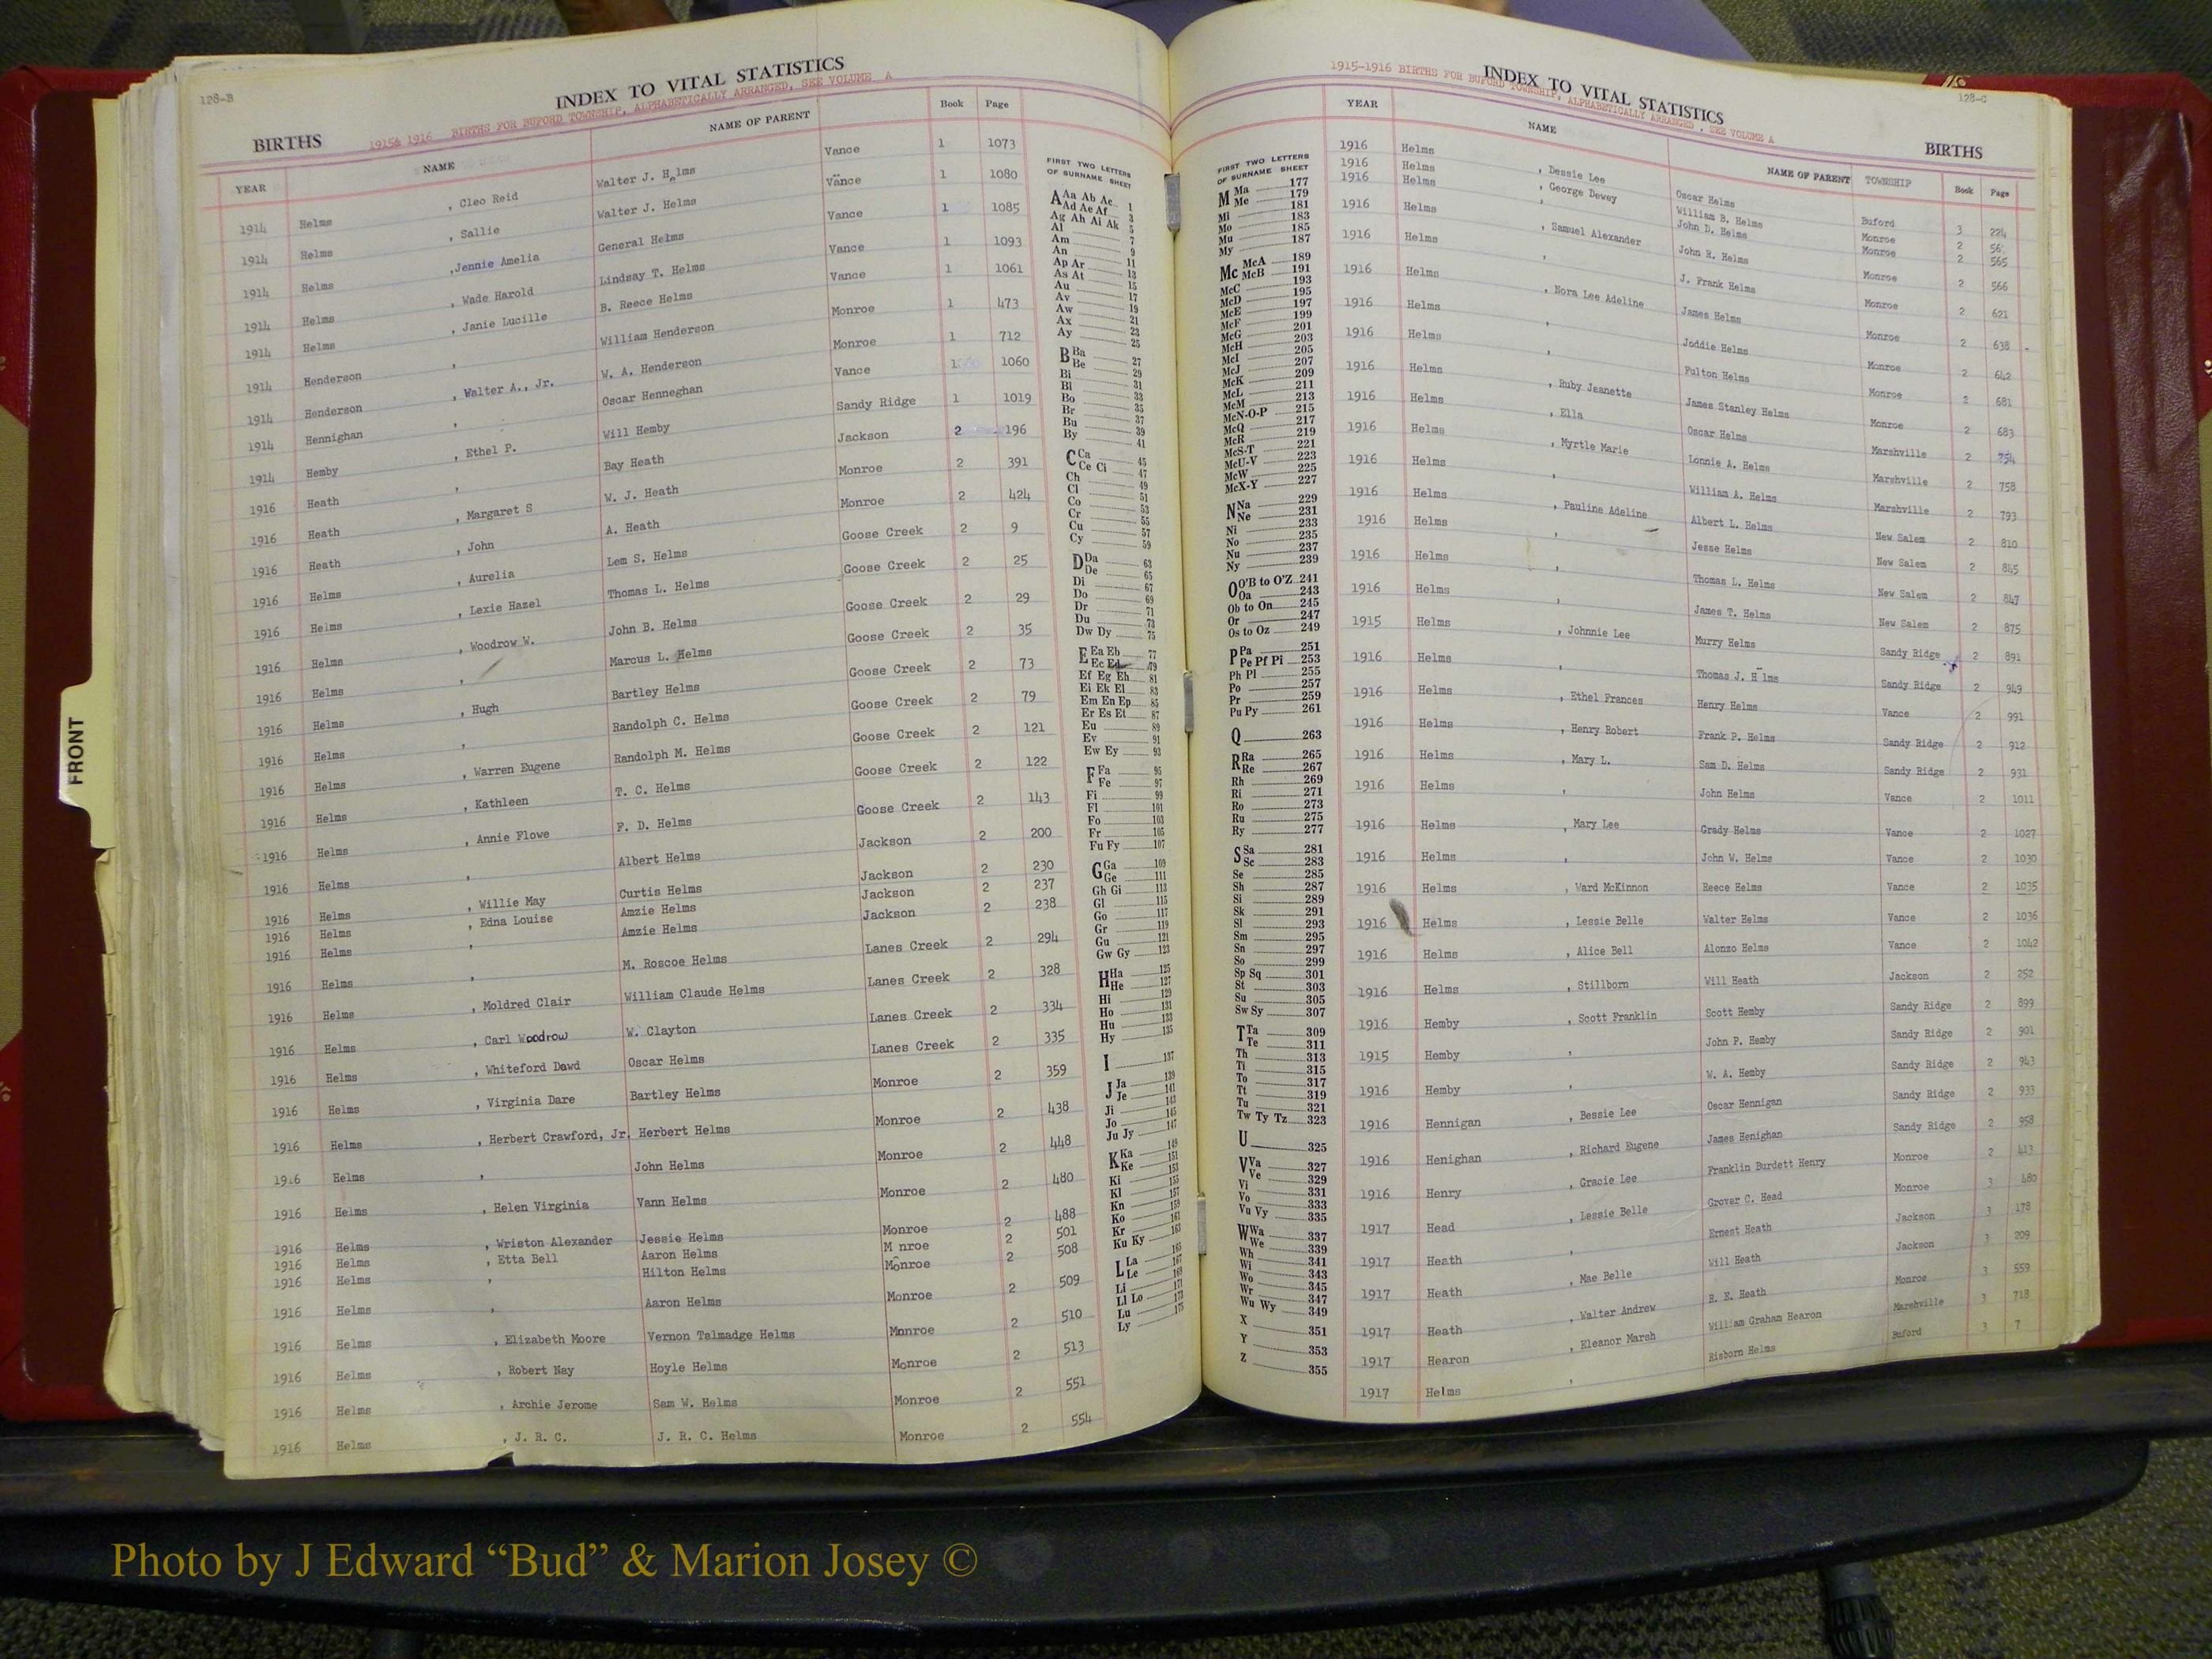 128-B
INDEX TO VITAL STATISTICS
BIRTHS 1915& 1916 BIRTHS FOR BUFORD TOWNSHIP, ALPHABETICALLY ARRANGED, SEE VOLUME A
YEAR NAME NAME OF PARENT Book Page
1914 Helms , Cleo Reid Walter J. Helms Vance 1 1073
1914 Helms , Sallie Walter J. Helms Vance 1 1080
1914 Helms ,Jennie Amelia General Helms Vance 1 1085
1914 Helms , Wade Harold Lindsay T. Helms Vance 1 1093
1914 Helms , Janie Lucille B. Reece Helms Vance 1 1061
1914 Henderson , William Henderson Monroe 1 473
1914 Henderson , Walter A., Jr. W. A. Henderson Monroe 1 712
1914 Hennighan , Oscar Henneghan Vance 1 1060
1914 Hemby , Ethel P. Will Hemby Sandy Ridge 1 1019
1916 Heath , Bay Heath Jackson 2 196
1916 Heath , Margaret S W. J. Heath Monroe 2 391
1916 Heath , John A. Heath Monroe 2 424
1916 Helms , Aurelia Lem S. Helms Goose Creek 2 9
1916 Helms , Lexie Hazel Thomas L. Helms Goose Creek 2 25
1916 Helms , Woodrow W. John B. Helms Goose Creek 2 29
1916 Helms , Marcus L. Helms Goose Creek 2 35
1916 Helms , Hugh Bartley Helms Goose Creek 2 73
1916 Helms , Randolph C. Helms Goose Creek 2 79
1916 Helms , Warren Eugene Randolph M. Helms Goose Creek 2 121
1916 Helms , Kathleen T. C. Helms Goose Creek 2 122
1916 Helms , Annie Flowe F. D. Helms Goose Creek 2 143
1916 Helms , Albert Helms Jackson 2 200
1916 Helms , Willie May Curtis Helms Jackson 2 230
1916 Helms , Edna Louise Amzie Helms Jackson 2 237
1916 Helms , Amzie Helms Jackson 2 238
1916 Helms , M. Roscoe Helms Lanes Creek 2 294
1916 Helms , Moldred Clair William Claude Helms Lanes Creek 2 328
1916 Helms , Carl Woodrow W. Clayton Lanes Creek 2 334
1916 Helms , Whiteford Dawd Oscar Helms Lanes Creek 2 335
1916 Helms , Virginia Dare Bartley Helms Monroe 2 359
1916 Helms , Herbert Crawford, Jr. Herbert Helms Monroe 2 438
1916 Helms , John Helms Monroe 2 448
1916 Helms , Helen Virginia Vann Helms Monroe 2 480
1916 Helms , Wriston Alexander Jessie Helms Monroe 2 488
1916 Helms , Etta Bell Aaron Helms M nroe 2 501
1916 Helms , Hilton Helms Monroe 2 508
1916 Helms , Aaron Helms Monroe 2 509
1916 Helms , Elizabeth Moore Vernon Talmadge Helms Monroe 2 510
1916 Helms , Robert Nay Hoyle Helms Monroe 2 513
1916 Helms , Archie Jerome Sam W. Helms Monroe 2 551
1916 Helms , J. R. C. J. R. C. Helms Monroe 2 554
FRONT
FIRST TWO LETTERS
OF SURNAME SHEET
A Aa Ab Ac 1
Ad Ae Af 3
Ag Ah Ai Ak 5
Al 7
Am 9
An 11
Ap Ar 13
As At 15
Au 17
Av 19
Aw 21
Ax 23
Ay 25
B Ba 27
Be 29
Bi 31
Bl 33
Bo 35
Br 37
Bu 39
By 41
C Ca 45
Ce Ci 47
Ch 49
Cl 51
Co 53
Cr 55
Cu 57
Cy 59
D Da 63
De 65
Di 67
Do 69
Dr 71
Du 73
Dw Dy 75
E Ea Eb 77
Ec Ed 79
Ef Eg Eh 81
Ei Ek El 83
Em En Ep 85
Er Es Et 87
Eu 89
Ev 91
Ew Ey 93
F Fa 95
Fe 97
Fi 99
Fl 101
Fo 103
Fr 105
Fu Fy 107
G Ga 109
Ge 111
Gh Gi 113
Gl 115
Go 117
Gr 119
Gu 121
Gw Gy 123
H Ha 125
He 127
Hi 129
Ho 131
Hu 133
Hy 135
I 137
J Ja 139
Je 141
Ji 143
Jo 145
Ju Jy 147
K Ka 149
Ke 151
Ki 153
Kl 155
Kn 157
Ko 159
Kr 161
Ku Ky 163
L La 165
Le 167
Li 169
Ll Lo 171
Lu 173
Ly 175
128-C
INDEX TO VITAL STATISTICS
1915-1916 BIRTHS FOR BUFORD TOWNSHIP, ALPHABETICALLY ARRANGED , SEE VOLUME A
BIRTHS
FIRST TWO LETTERS
OF SURNAME SHEET
M Ma 177
Me 179
Mi 181
Mo 183
Mu 185
My 187
Mc McA 189
McB 191
McC 193
McD 195
McE 197
McF 199
McG 201
McH 203
McI 205
McJ 207
McK 209
McL 211
McM 213
McN-O-P 215
McQ 217
McR 219
McS-T 221
McU-V 223
McW 225
McX-Y 227
N Na 229
Ne 231
Ni 233
No 235
Nu 237
Ny 239
O O'B to O'Z 241
Oa 243
Ob to On 245
Or 247
Os to Oz 249
P Pa 251
Pe Pf Pi 253
Ph Pl 255
Po 257
Pr 259
Pu Py 261
Q 263
R Ra 265
Re 267
Rh 269
Ri 271
Ro 273
Ru 275
Ry 277
S Sa 281
Sc 283
Se 285
Sh 287
Si 289
Sk 291
Sl 293
Sm 295
Sn 297
So 299
Sp Sq 301
St 303
Su 305
Sw Sy 307
T Ta 309
Te 311
Th 313
Ti 315
To 317
Tt 319
Tu 321
Tw Ty Tz 323
U 325
V Va 327
Ve 329
Vi 331
Vo 333
Vu Vy 335
W Wa 337
We 339
Wh 341
Wi 343
Wo 345
Wr 347
Wu Wy 349
X 351
Y 353
Z 355
YEAR NAME NAME OF PARENT TOWNSHIP Book Page
1916 Helms , Dessie Lee Oscar Helms Buford 3 224
1916 Helms , George Dewey William B. Helms Monroe 2 56
1916 Helms , John D. Helms Monroe 2 565
1916 Helms , Samuel Alexander John R. Helms Monroe 2 566
1916 Helms , J. Frank Helms Monroe 2 621
1916 Helms , Nora Lee Adeline James Helms Monroe 2 638
1916 Helms , Joddie Helms Monroe 2 642
1916 Helms , Fulton Helms Monroe 2 681
1916 Helms , Ruby Jeanette James Stanley Helms Monroe 2 683
1916 Helms , Ella Oscar Helms Marshville 2 754
1916 Helms , Myrtle Marie Lonnie A. Helms Marshville 2 758
1916 Helms , William A. Helms Marshville 2 793
1916 Helms , Pauline Adeline Albert L. Helms New Salem 2 810
1916 Helms , Jesse Helms New Salem 2 845
1916 Helms , Thomas L. Helms New Salem 2 847
1916 Helms , James T. Helms New Salem 2 875
1915 Helms , Johnnie Lee Murry Helms Sandy Ridge 2 891
1916 Helms , Thomas J. H lms Sandy Ridge 2 949
1916 Helms , Ethel Frances Henry Helms Vance 2 991
1916 Helms , Henry Robert Frank P. Helms Sandy Ridge 2 912
1916 Helms , Mary L. Sam D. Helms Sandy Ridge 2 931
1916 Helms , John Helms Vance 2 1011
1916 Helms , Mary Lee Grady Helms Vance 2 1027
1916 Helms , John W. Helms Vance 2 1030
1916 Helms , Ward McKinnon Reece Helms Vance 2 1035
1916 Helms , Lessie Belle Walter Helms Vance 2 1036
1916 Helms , Alice Bell Alonzo Helms Vance 2 1042
1916 Helms , Stillborn Will Heath Jackson 2 252
1916 Hemby , Scott Franklin Scott Hemby Sandy Ridge 2 899
1915 Hemby , John P. Hemby Sandy Ridge 2 901
1916 Hemby , W. A. Hemby Sandy Ridge 2 943
1916 Hennigan , Bessie Lee Oscar Hennigan Sandy Ridge 2 933
1916 Henighan , Richard Eugene James Henighan Sandy Ridge 2 958
1916 Henry , Gracie Lee Franklin Burdett Henry Monroe 2 413
1917 Head , Lessie Belle Grover C. Head Monroe 3 480
1917 Heath , Ernest Heath Jackson 3 178
1917 Heath , Mae Belle Will Heath Jackson 3 209
1917 Heath , Walter Andrew R. E. Heath Monroe 3 559
1917 Hearon , Eleanor Marsh William Graham Hearon Marshville 3 718
1917 Helms , Risborn Helms Buford 3 7
Photo by J Edward “Bud” & Marion Josey ©